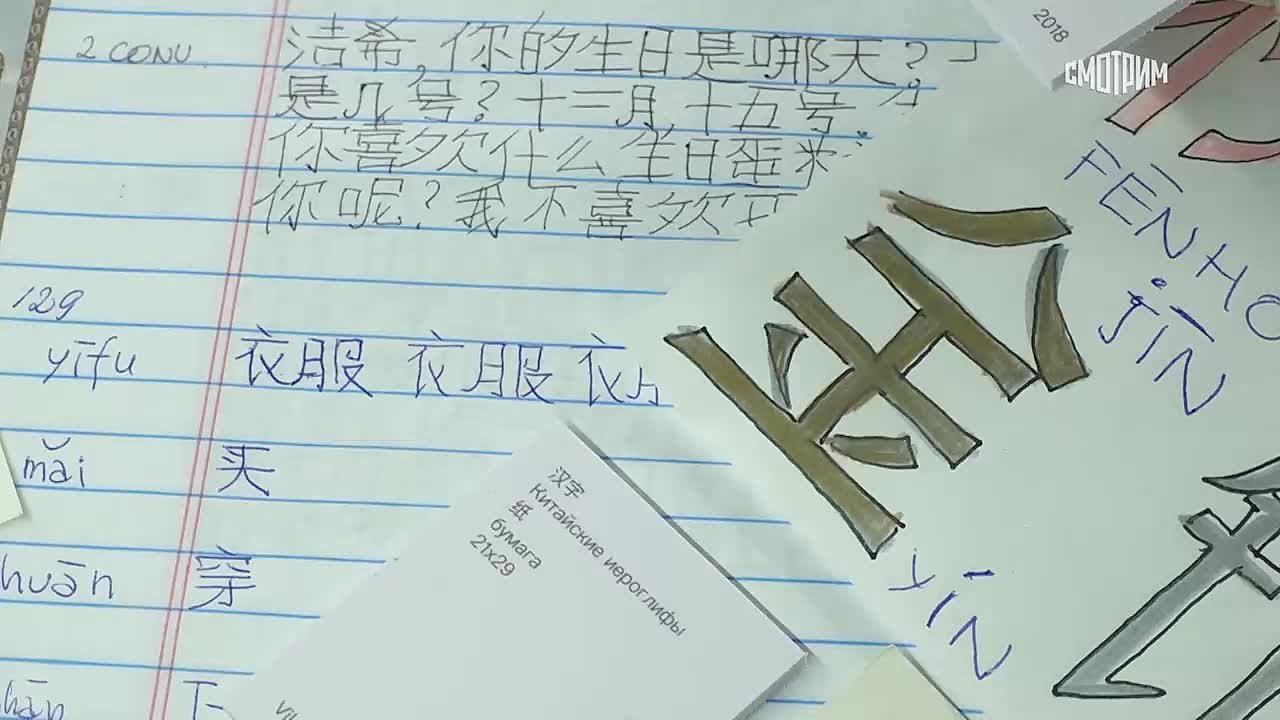 2 CONV.
洁希,你的生日是哪天?
是几号?十三月,十五号。
你喜欢什么生日蛋
你呢?我不喜欢
129
yīfu 衣服 衣服 衣
mǎi 买
huān 穿
下
汉字
Китайские иероглифы
纸
бумага
21x29
金
FĒNHO
JĪN
YĪN
2018
СМОТРИМ